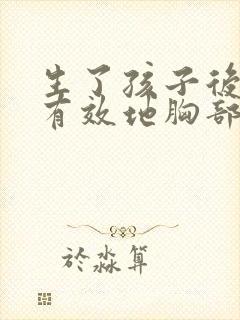 生了孩子後
有效地胸部
於淼算